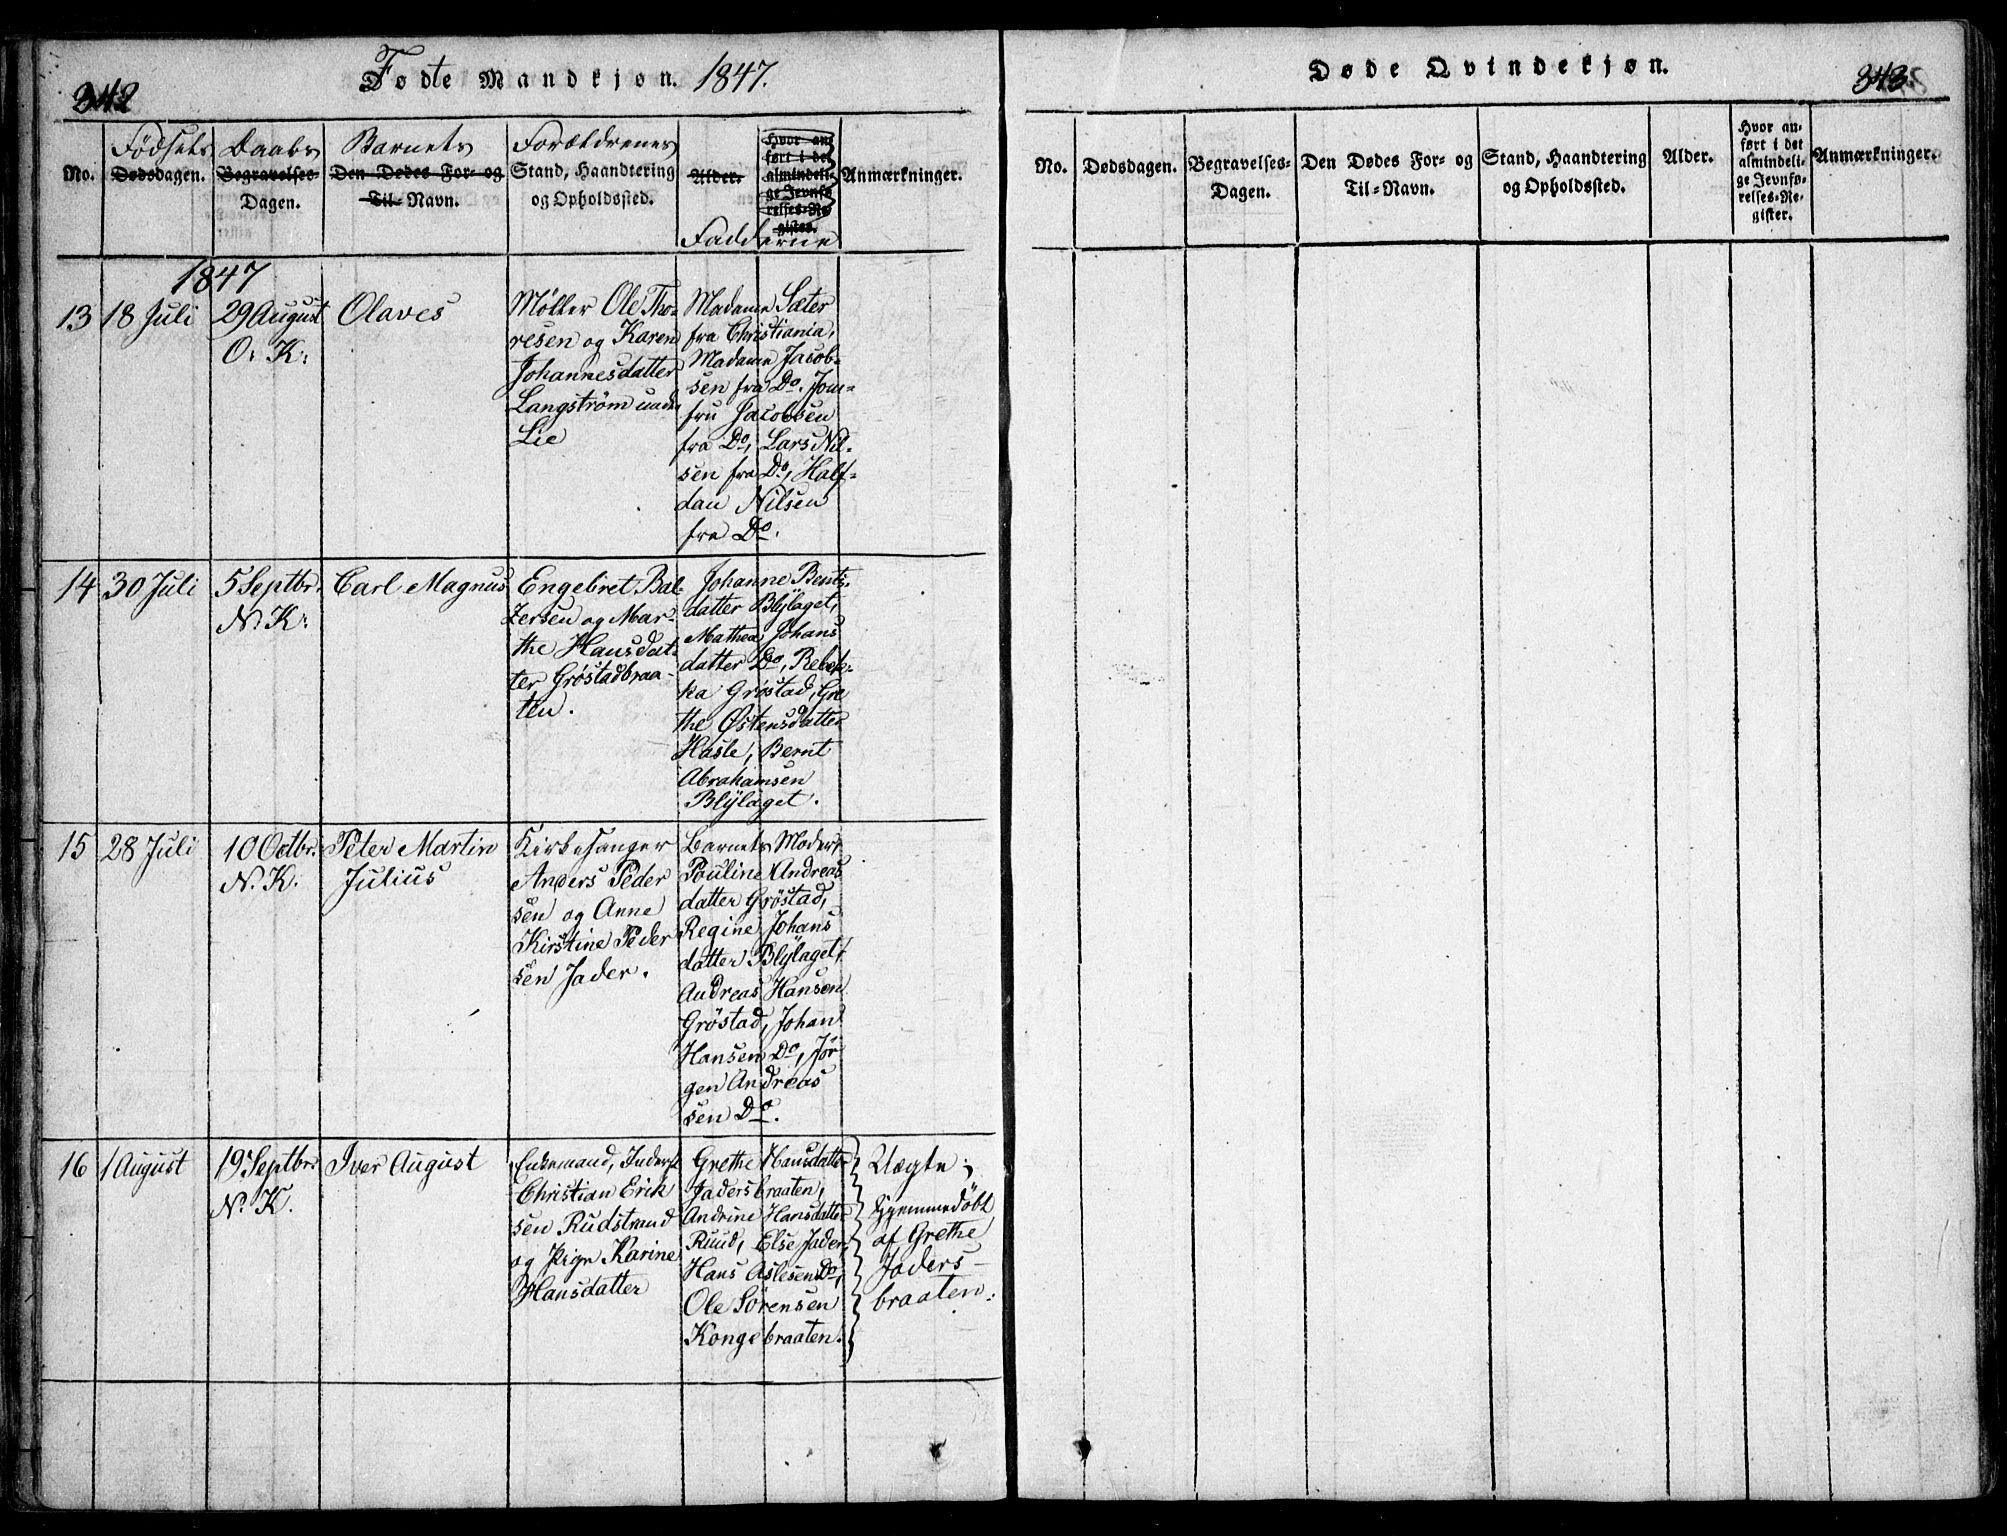 342
Fødte Mandkjøn. 1847.
No.
Fødsels
Dødsdagen.
Daabs
Begravelses-
Dagen.
Barnets
Den Dødes For- og
Til-Navn.
Forældrenes
Stand, Haandtering
og Opholdssted.
Alder.
Hvor an
ført i det
almindeli-
ge Jevnfø
relses-Re
gister.
Fadderne
Anmærkninger.
1847
13
18 Juli
29 August
O. K:
Olaves
Møller Ole Tho-
resen og Karen
Johannesdatter
Langstrøm
Lie
Madame Sæter
fra Christiania,
Madame Jacob-
sen fra Do. Jom-
fru Jacobsen
fra Do, Lars Nil-
sen fra Do, Half-
dan Nilsen
fra Do.
14
30 Juli
5 Septbr.
N. K:
Carl Magnus
Engebret Bal-
zersen og Mar-
the Hansdat-
ter Grøstadbraa-
ten.
Johanne Bents-
datter Blÿlaget,
Mathea Johans
datter Do, Rebek-
ka Grøstad, Gre
the Østensdatter
Hasle, Bernt
Abrahamsen
Blÿlaget.
15
28 Juli
10 Octbr.
N. K.
Peter Martin
Julius
Kirkesanger
Anders Peder
sen og Anne
Kirstine Peder
sen Jader.
Barnets Moder,
Pouline Andreas
datter Grøstad,
Regine Johans
datter Blÿlaget,
Andreas Hansen
Grøstad, Johan
Hansen Do, Jør
gen Andreas
sen Do.
16
1 August
19 Septbr
N. K.
Iver August
Enkemand, Inderst
Christian Erik
sen Rudstrand
og Pige Karine
Hansdatter
Grethe Hansdatter
Jadersbraaten,
Andrine Hansdatter
Ruud, Else Jader,
Hans Aslesen Do,
Ole Sørensen
Kongebraaten.
Uægte;
hjemmedøbt
af Grethe
Jaders-
braaten.
Døde Qvindekjøn.
343
No.
Dødsdagen.
Begravelses-
Dagen.
Den Dødes For- og
Til-Navn.
Stand, Haandtering
og Opholdssted.
Alder.
Hvor an-
ført i det
almindeli-
ge Jevnfø-
relses-Re-
gister.
Anmærkninger.